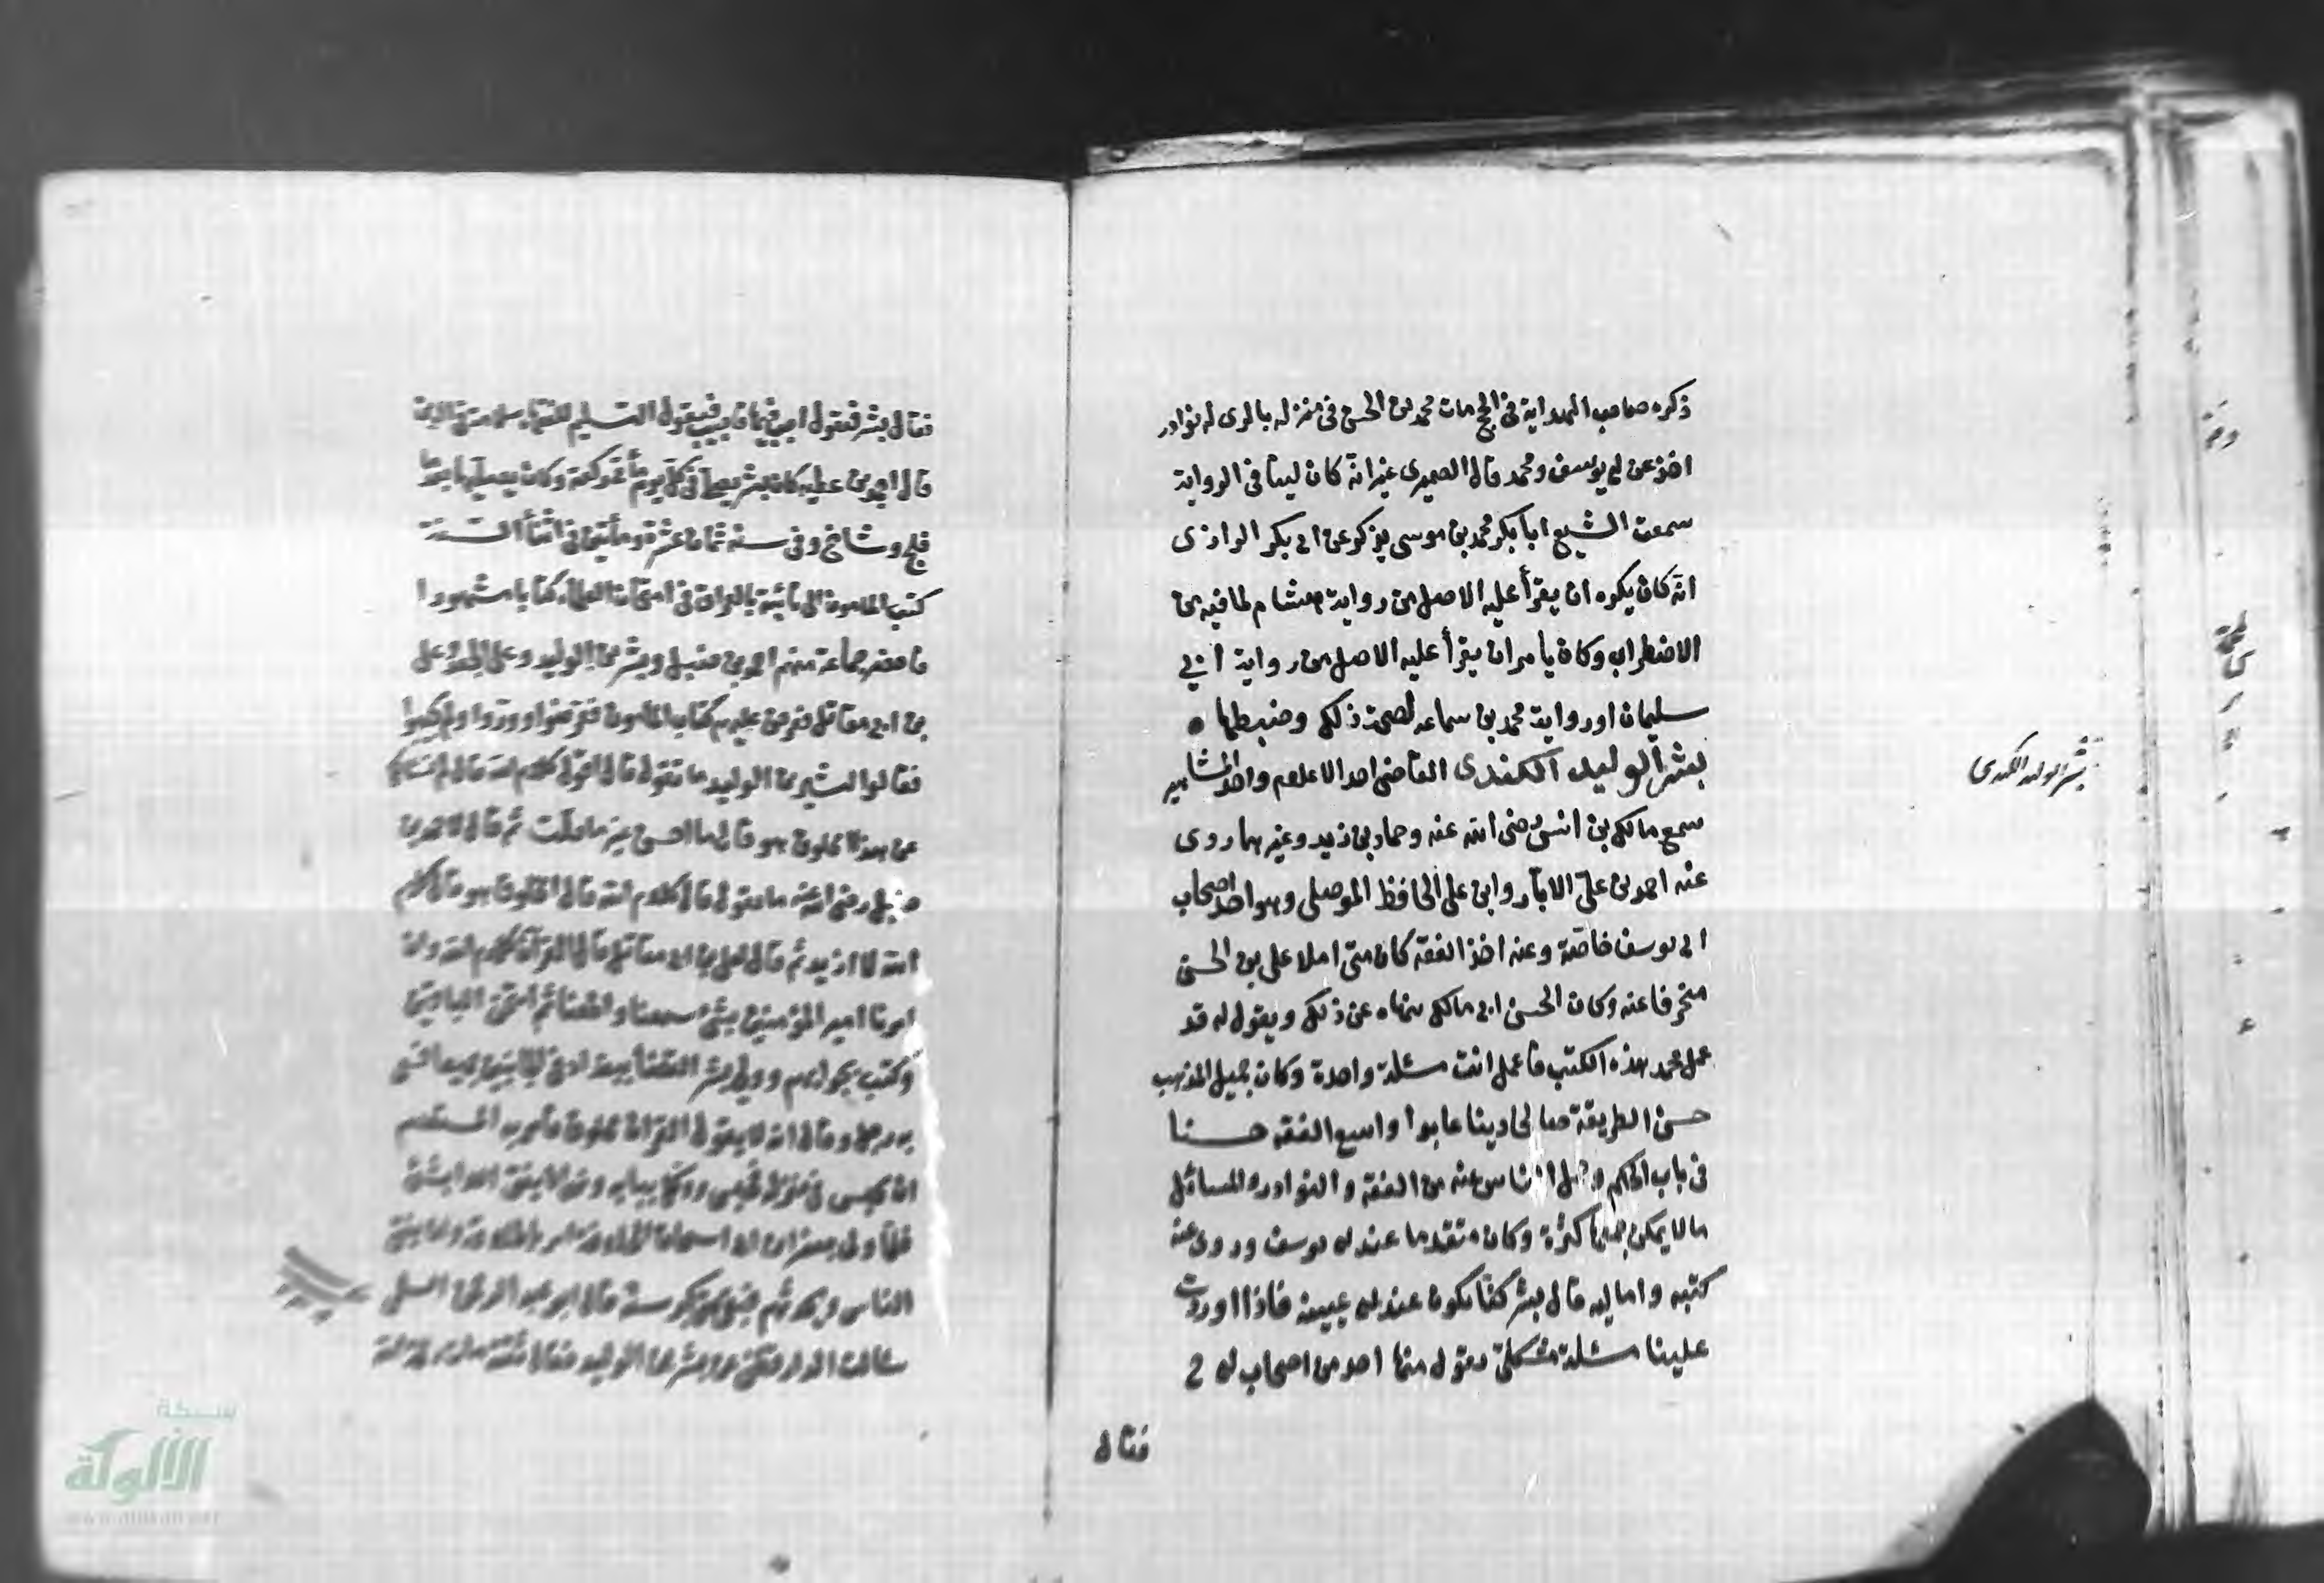 ذكره صاحب الهداية في الحج مات محمد بن الحسن في منزله بالري له نوادر
اخذ عن ابي يوسف ومحمد قال الصيمري غير انه كان لينا في الرواية
سمعت الشيخ ابا بكر محمد بن موسى يذكر عن ابي بكر الرازي
انه كان يكره ان يقرأ عليه الاصل من رواية هشام لما فيه من
الاضطراب وكان يأمر ان يقرأ عليه الاصل من رواية ابي
سليمان او رواية محمد بن سماعه لصحة ذلك وضبطها ٥
بشر الوليد الكندى القاضي احد الاعلام واحد المشاهير
سمع مالك بن انس رضى الله عنه وحماد بن زيد وغيرهما روى
عنه احمد بن على الابار وابن على الحافظ الموصلي وهو احد اصحاب
ابي يوسف خاصة وعنه اخذ الفقه كان متى املا على بن الحسن
منحرفا عنه وكان الحسن ابن مالك ينهاه عن ذلك ويقول له قد
عمل محمد هذه الكتب فاعمل انت مسئلة واحدة وكان جميل المذهب
حسن الطريقة صالحا دينا عابدا واسع الفقه حسنا
في باب الحكم وحمل الناس عنه من الفقه والنوادر والمسائل
ما لا يمكن جمعها كثرة وكان متقدما عند ابي يوسف وروى عنه
كتبه واماليه قال بشر كنا نكون عند ابن عيينه فاذا اوردت
علينا مسئلة مشكلة يقول هنا احد من اصحاب ابي ح
فقال
بشر الوليد الكندى
فقال بشر فيقول اجب فيها فاجيب فيقول التسليم للفقهاء سلامة في الدين
قال احمد بن عطيه كان بشر يصلى في كل يوم مأتى ركعة وكان يصليها بعدما
فلج وشاخ وفي سنة ثمان عشرة ومأتين في اثناء السنة
كتب المامون الى نائبه بالعراق في امتحان العلماء كتابا مشهورا
فاحضر جماعة منهم احمد بن حنبل وبشر بن الوليد وعلى بن الجعد وعلى
بن ابي مقاتل فعرض عليهم كتاب المامون فعرضوا ووروا ولم يجيبوا
فقالوا لبشر بن الوليد ما تقول قال اقول كلام الله قال لم اسألك
عن هذا مخلوق هو قال ما احسن غير ما قلت ثم قال لاحمد بن
حنبل رضى الله عنه ما تقول قال كلام الله قال امخلوق هو قال كلام
الله لا ازيد ثم قال لعلى بن ابي مقاتل قال القرآن كلام الله وان
امرنا امير المؤمنين بشئ سمعنا واطعنا ثم امتحن الباقين
وكتب بجوابهم وولى بشر القضاء ببغداد في الجانبين جميعا فسعى
به رجل وقال انه لا يقول القران مخلوق فأمر به المعتصم
ان يحبس في منزله فحبس ووكل ببابه ونهى ان يفتى احدا بشئ
فلما ولى جعفر ابن ابي اسحاق الخلافة امر باطلاقه وان يفتى
الناس ويحدثهم فبقى حتى كبر سنه قال ابو عبد الرحمن السلمى
سالت الدارقطنى عن بشر بن الوليد فقال ثقة مات رحمه الله
شبكة
الألوكة
www.alukah.net